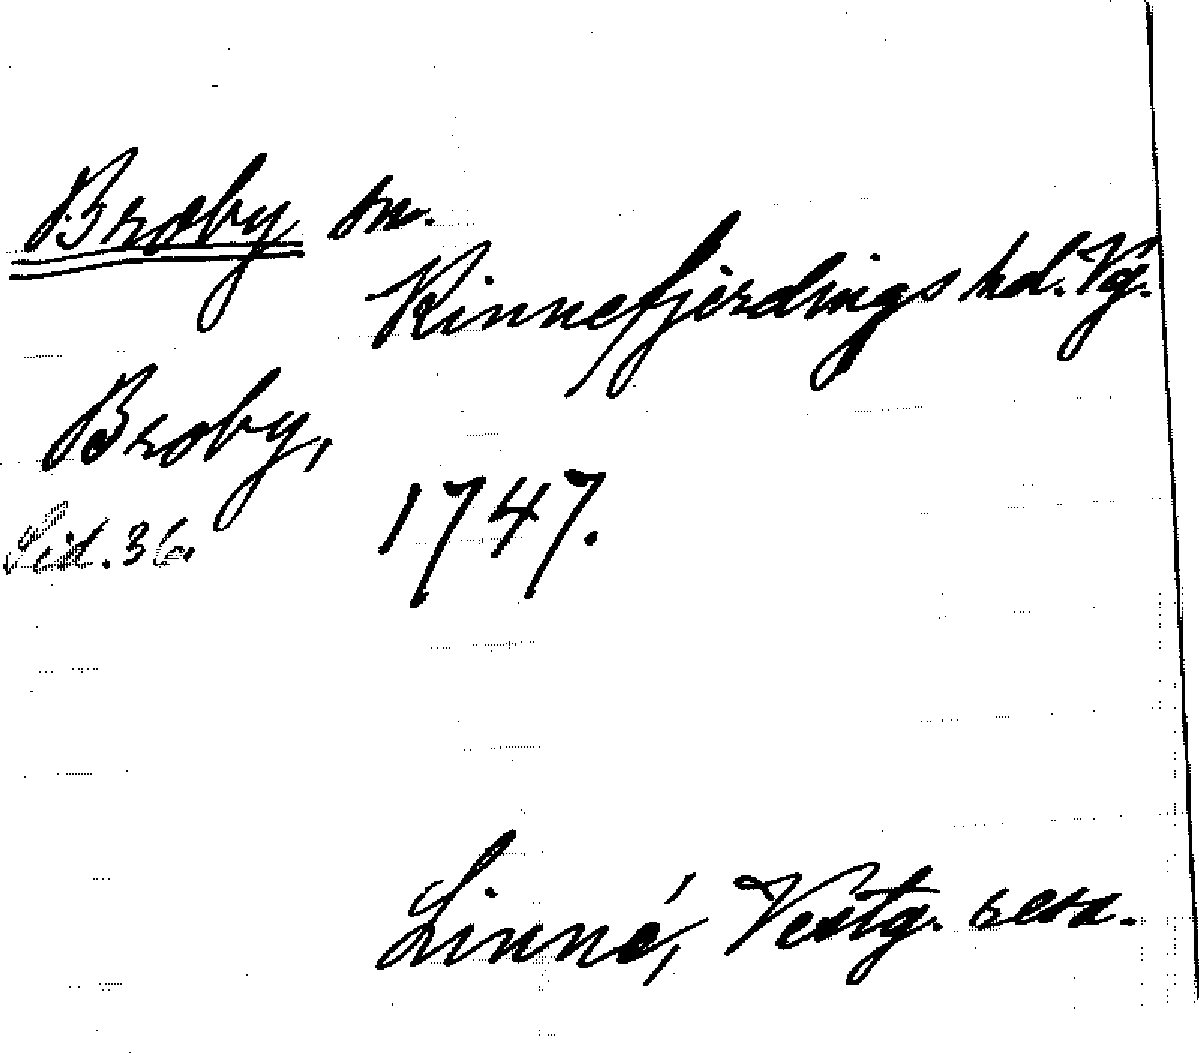 Broby sn.
Kinnefjerdings hd. Vg.
Broby,
1747.
Sid. 36.
Linné, Vestg. resa.